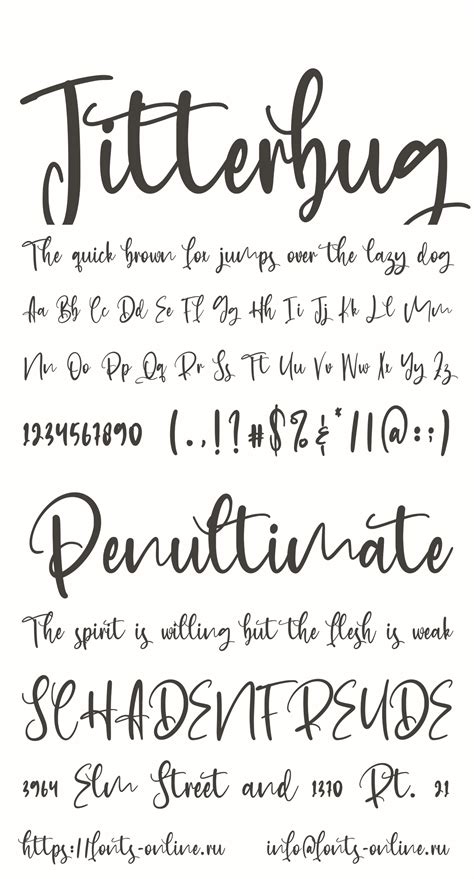 Jitterbug
The quick brown fox jumps over the lazy dog
Aa Bb Cc Dd Ee Ff Gg Hh Ii Jj Kk Ll Mm
Nn Oo Pp Qq Rr Ss Tt Uu Vv Ww Xx Yy Zz
1234567890 (.,!?#$%&*||@:;)
Penultimate
The spirit is willing but the flesh is weak
SCHADENFREUDE
3964 Elm Street and 1370 Rt. 21
https://fonts-online.ru info@fonts-online.ru